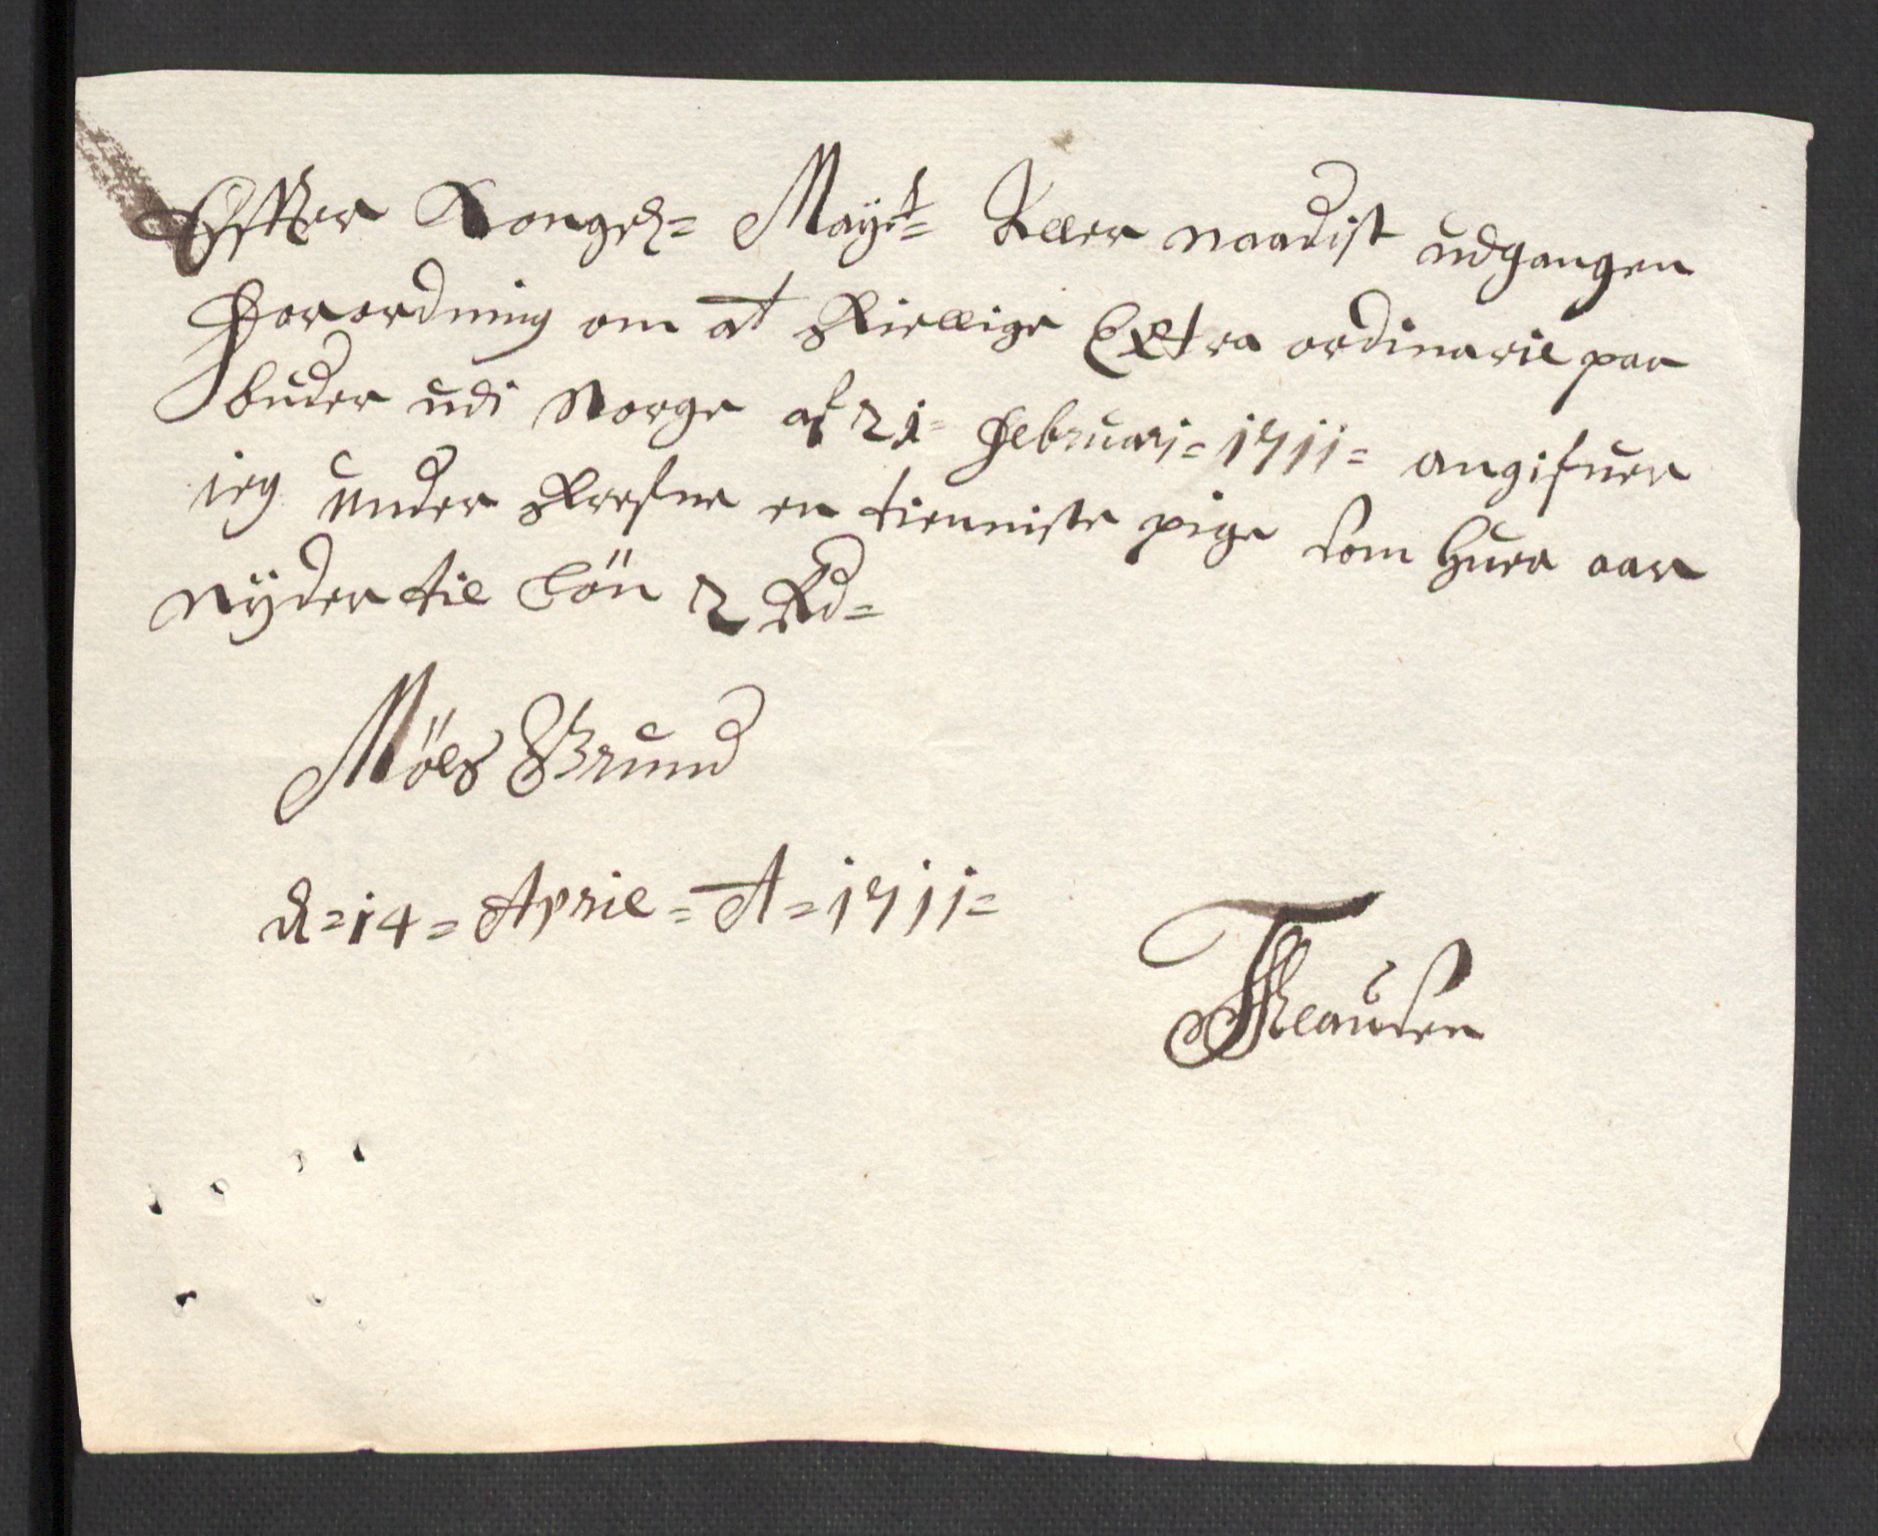 Effter Kongel= Mayst= Aller naadist udgangen
Forordning om at skiellige Extra ordinarie paa
buder udi Norge af 21= Februarj= 1711= angifuer
ieg under skrefne en tienniste pige som huer aar
nÿder til Lön 2 Rd=
Möls Grund
d= 14= April= A= 1711=
Clausen